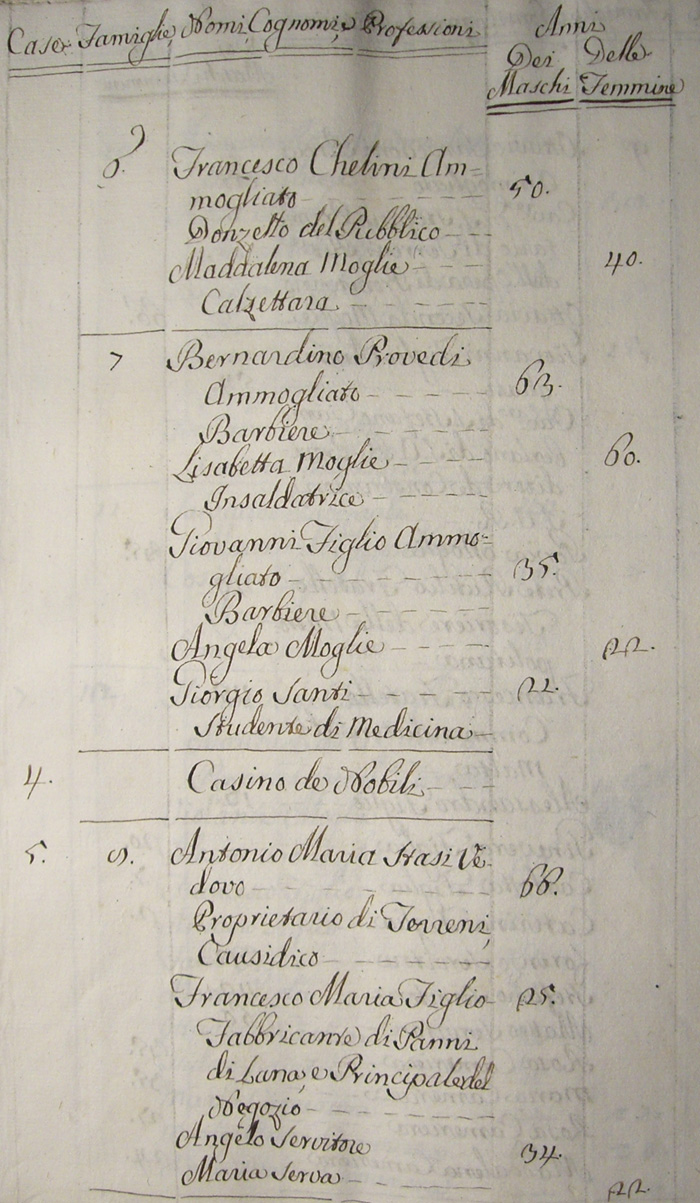 Case Famiglie Nomi, Cognomi, e Professioni
Anni
Dei Delle
Maschi Femmine
6. Francesco Chelini Am=
mogliato 50.
Donzello del Pubblico
Maddalena Moglie 40.
Calzettara
7 Bernardino Provedi
Ammogliato 63.
Barbiere
Lisabetta Moglie 60.
Insaldatrice
Giovanni Figlio Ammo=
gliato 35.
Barbiere
Angela Moglie 22.
Giorgio Santi 22.
Studente di Medicina
4. Casino de Nobili
5. 8. Antonio Maria Stasi Ve=
dovo 66.
Proprietario di Terreni,
Causidico
Francesco Maria Figlio 25.
Fabbricante di Panni
di Lana, e Principale del
Negozio
Angelo Servitore 34.
Maria Serva 22.